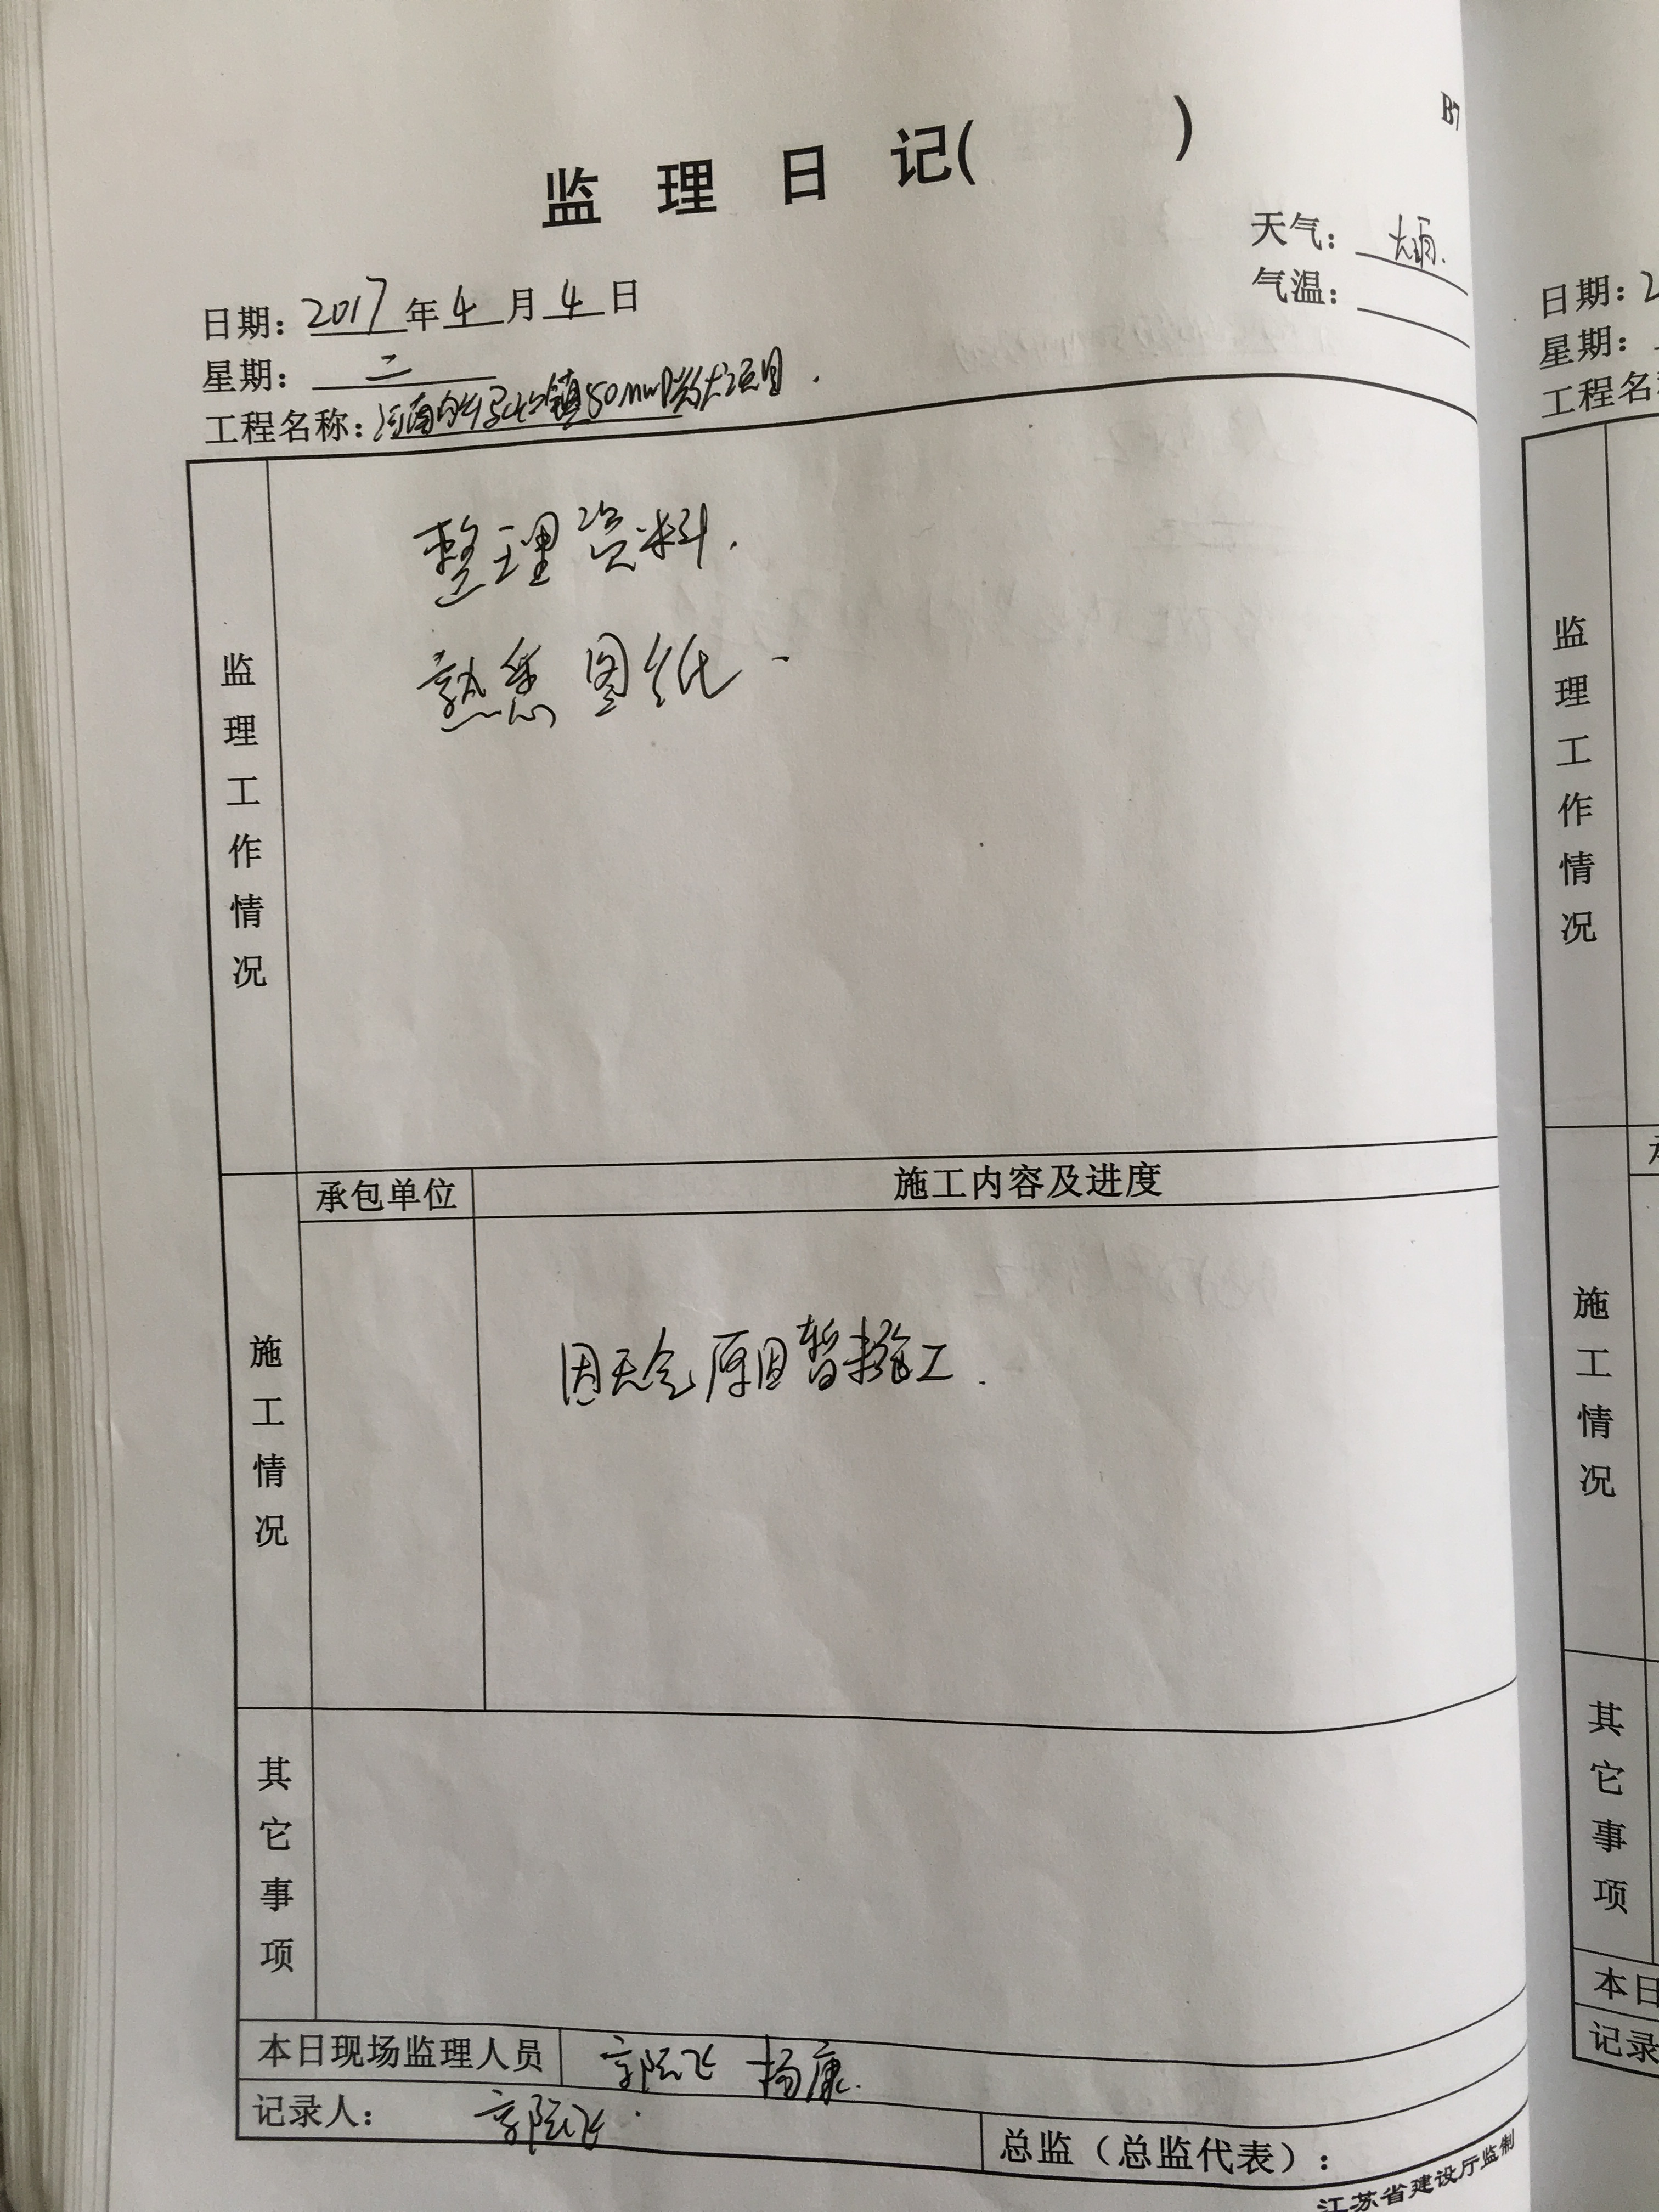 B7
监理日记(       )
天气：大雨.
气温：
日期：2017年4月4日
星期：二
工程名称：河南内乡 镇50MWP 项目.
监理工作情况
整理资料.
熟悉图纸.
承包单位
施工内容及进度
施工情况
因天气原因暂 施工.
其它事项
本日现场监理人员
郭 飞 杨康.
记录人：郭 飞.
总监（总监代表）：
江苏省建设厅监制
日期：2
星期：
工程名
监理工作情况
施工情况
其它事项
本日
记录